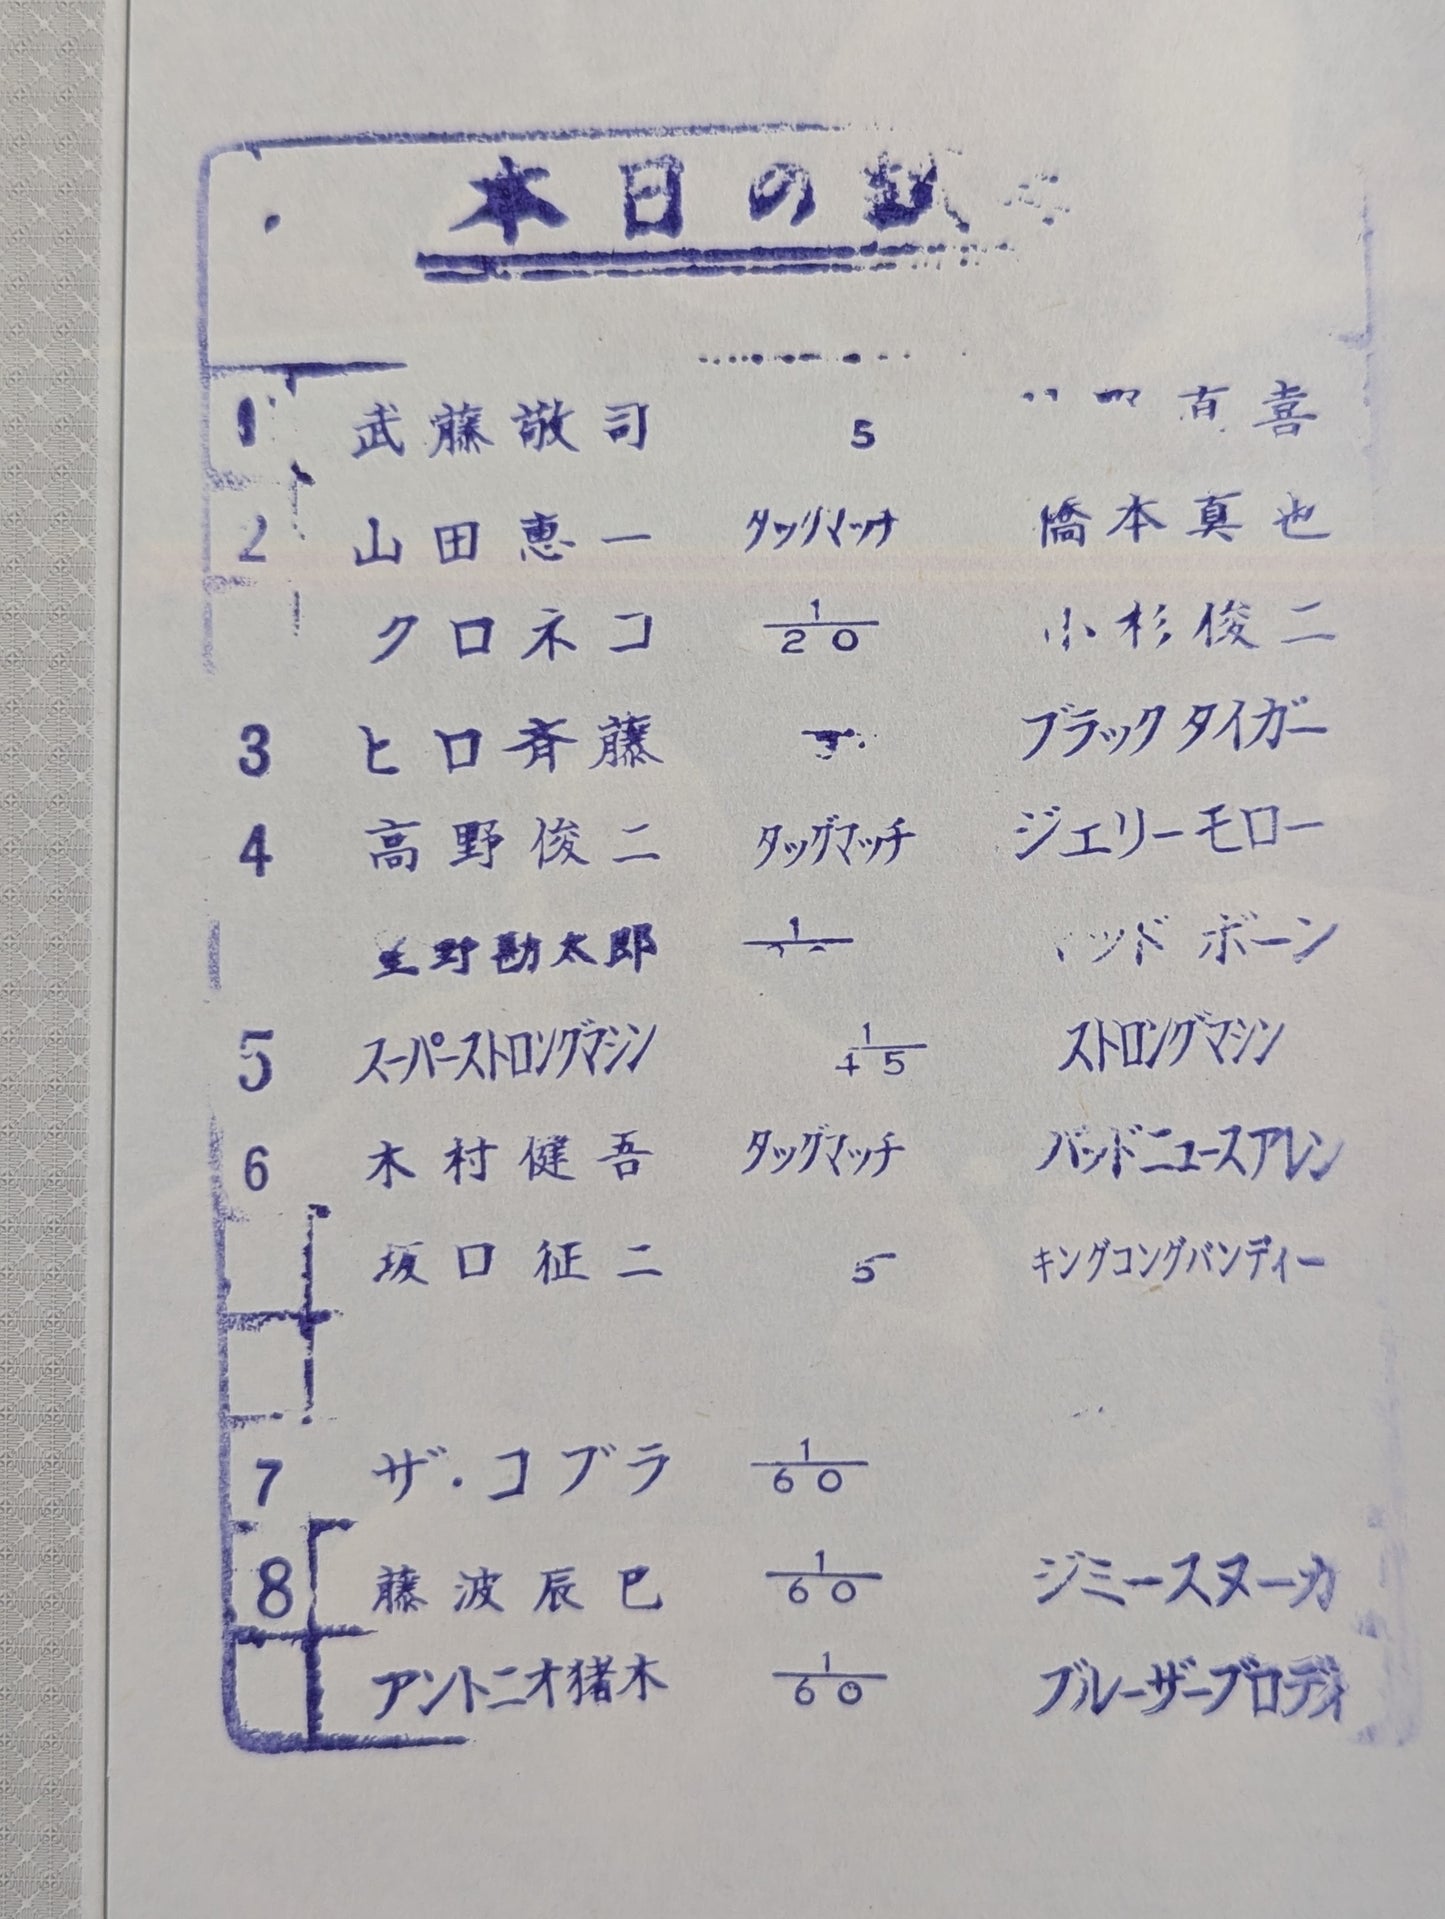 本日の試
1 武藤敬司 5 喜
2 山田恵一 タッグマッチ 橋本真也
クロネコ 1/20 小杉俊二
3 ヒロ斉藤 ブラックタイガー
4 高野俊二 タッグマッチ ジェリーモロー
生野勘太郎 1 ッドボーン
5 スーパーストロングマシン 1/45 ストロングマシン
6 木村健吾 タッグマッチ バッドニュースアレン
坂口征二 5 キングコングバンディー
7 ザ・コブラ 1/60
8 藤波辰巳 1/60 ジミースヌーカ
アントニオ猪木 1/60 ブルーザーブロディ